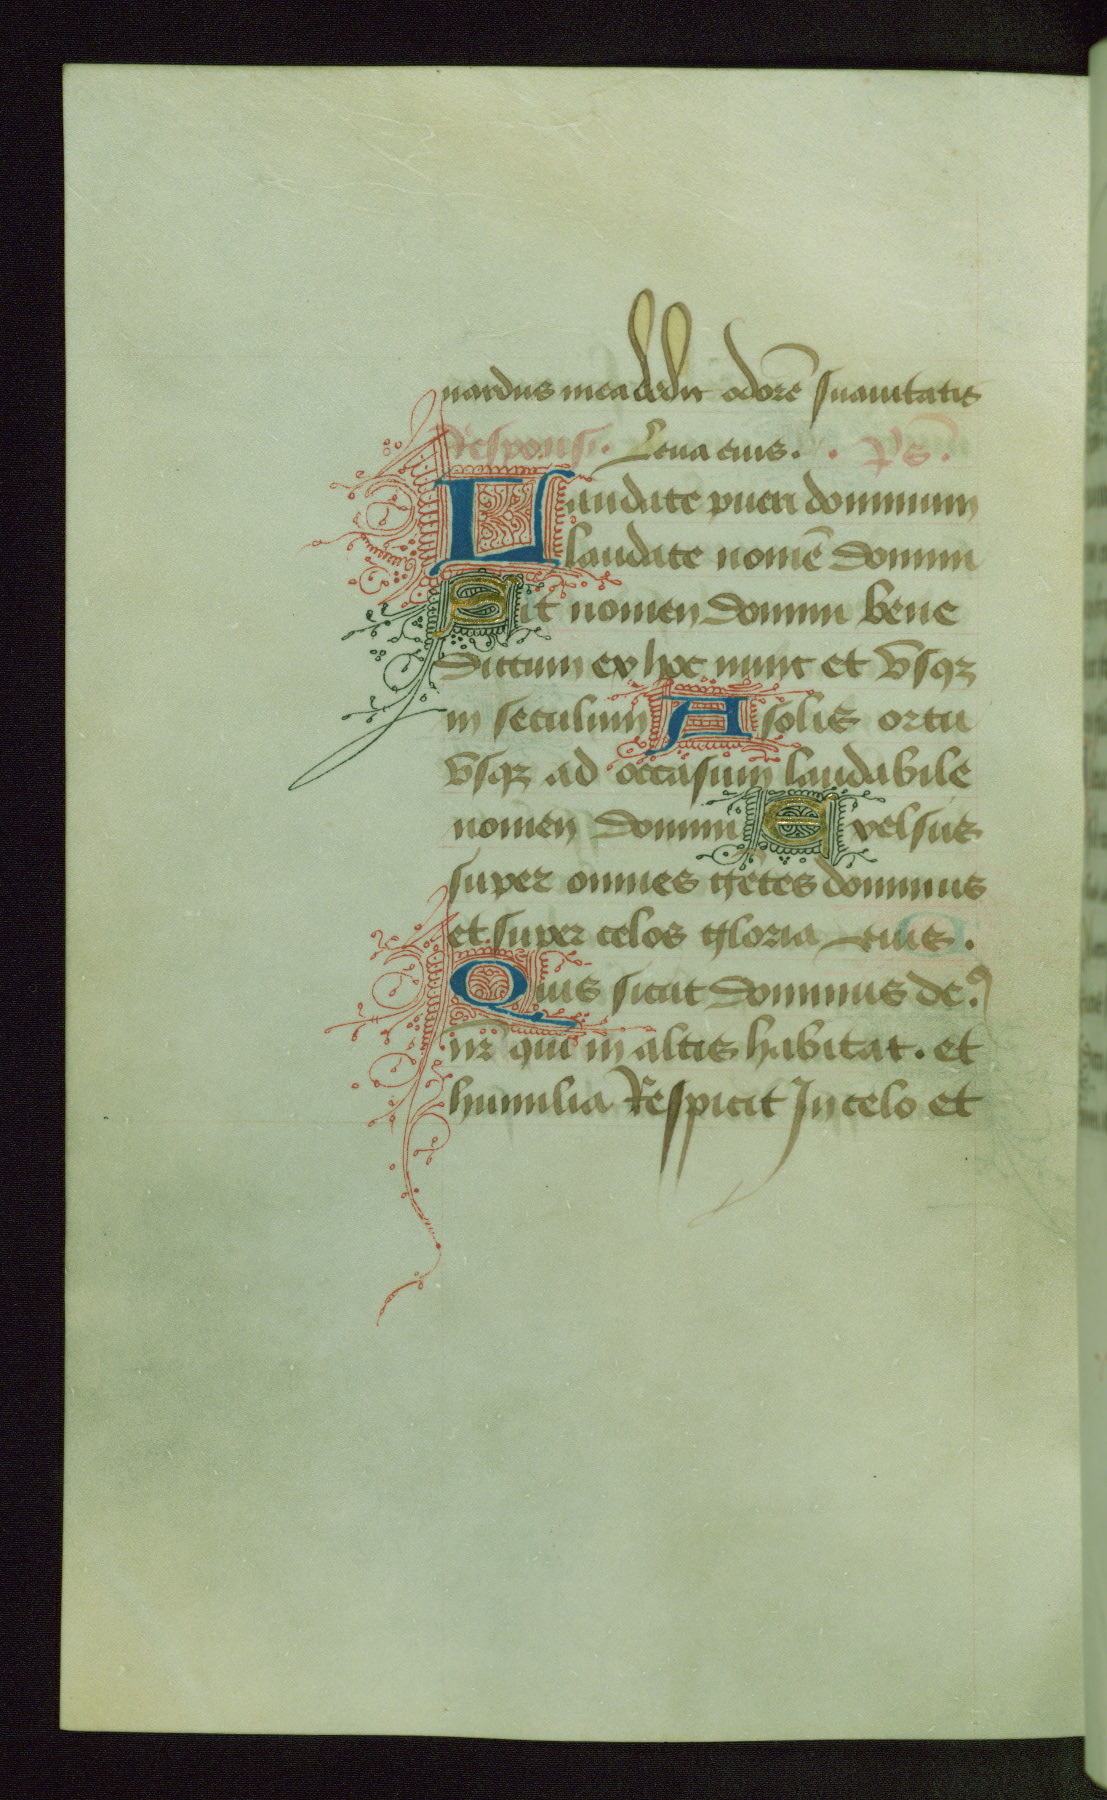 nardus mea dedit odorē suauitatis
Respons. Leua eius. . Ps.
Laudate pueri dominum
laudate nomē domini
Sit nomen domini bene
dictum ex hoc nunc et vsqz
in seculum A solis ortu
vsqz ad occasum laudabile
nomen domini Excelsus
super omnes gētes dominus
et super celos gloria eius.
Quis sicut dominus deꝰ
nr̄ qui in altis habitat. et
humilia Respicit In celo et